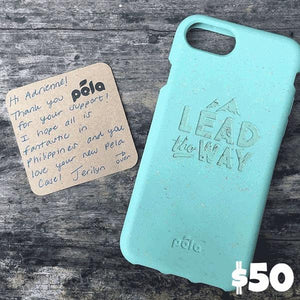 pela
Hi Adrienne!
Thank you
for your support!
I hope all is
fantastic in
Philippines and you
love your new Pela
Case! Jerilyn
over
LEAD
the WAY
pela
$50